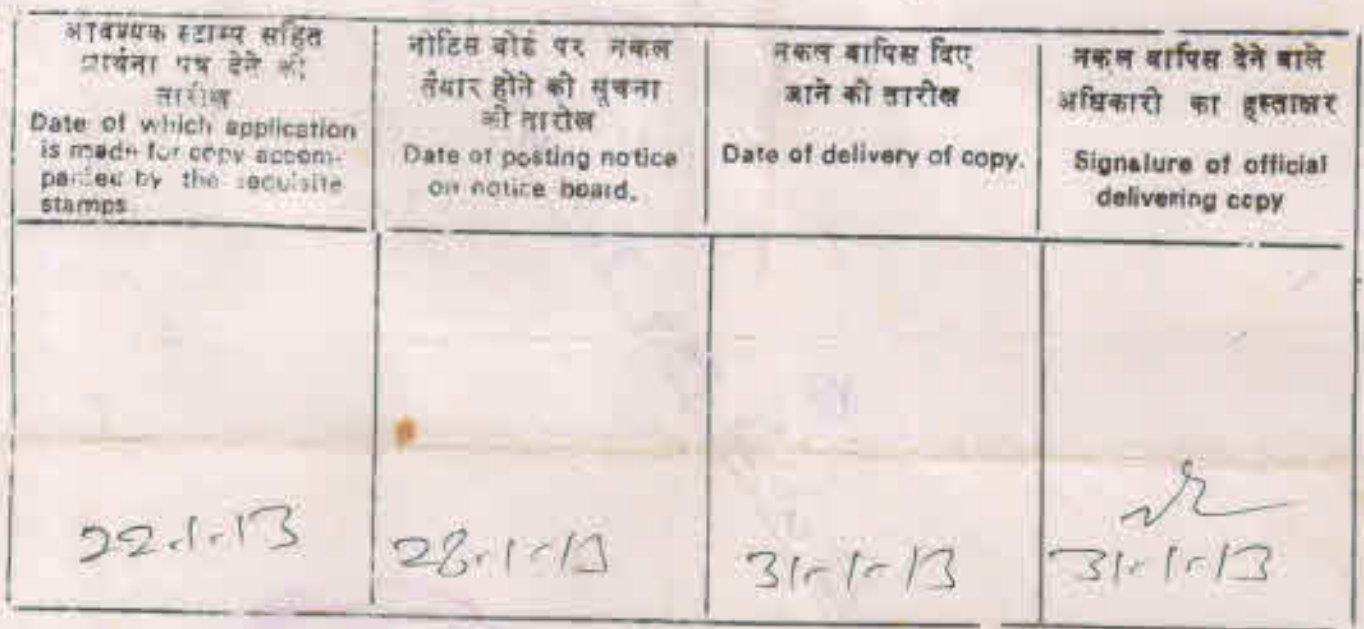 आवश्यक स्टाम्प सहित
प्रार्थना पत्र देने की
तारीख
Date of which application
is made for copy accom-
panied by the requisite
stamps
नोटिस बोर्ड पर नकल
तैयार होने की सूचना
की तारीख
Date of posting notice
on notice board.
नकल वापिस दिए
जाने की तारीख
Date of delivery of copy.
नकल वापिस देने वाले
अधिकारी का हस्ताक्षर
Signature of official
delivering copy
22.1.13
28.1.13
31-1-13
31-1-13